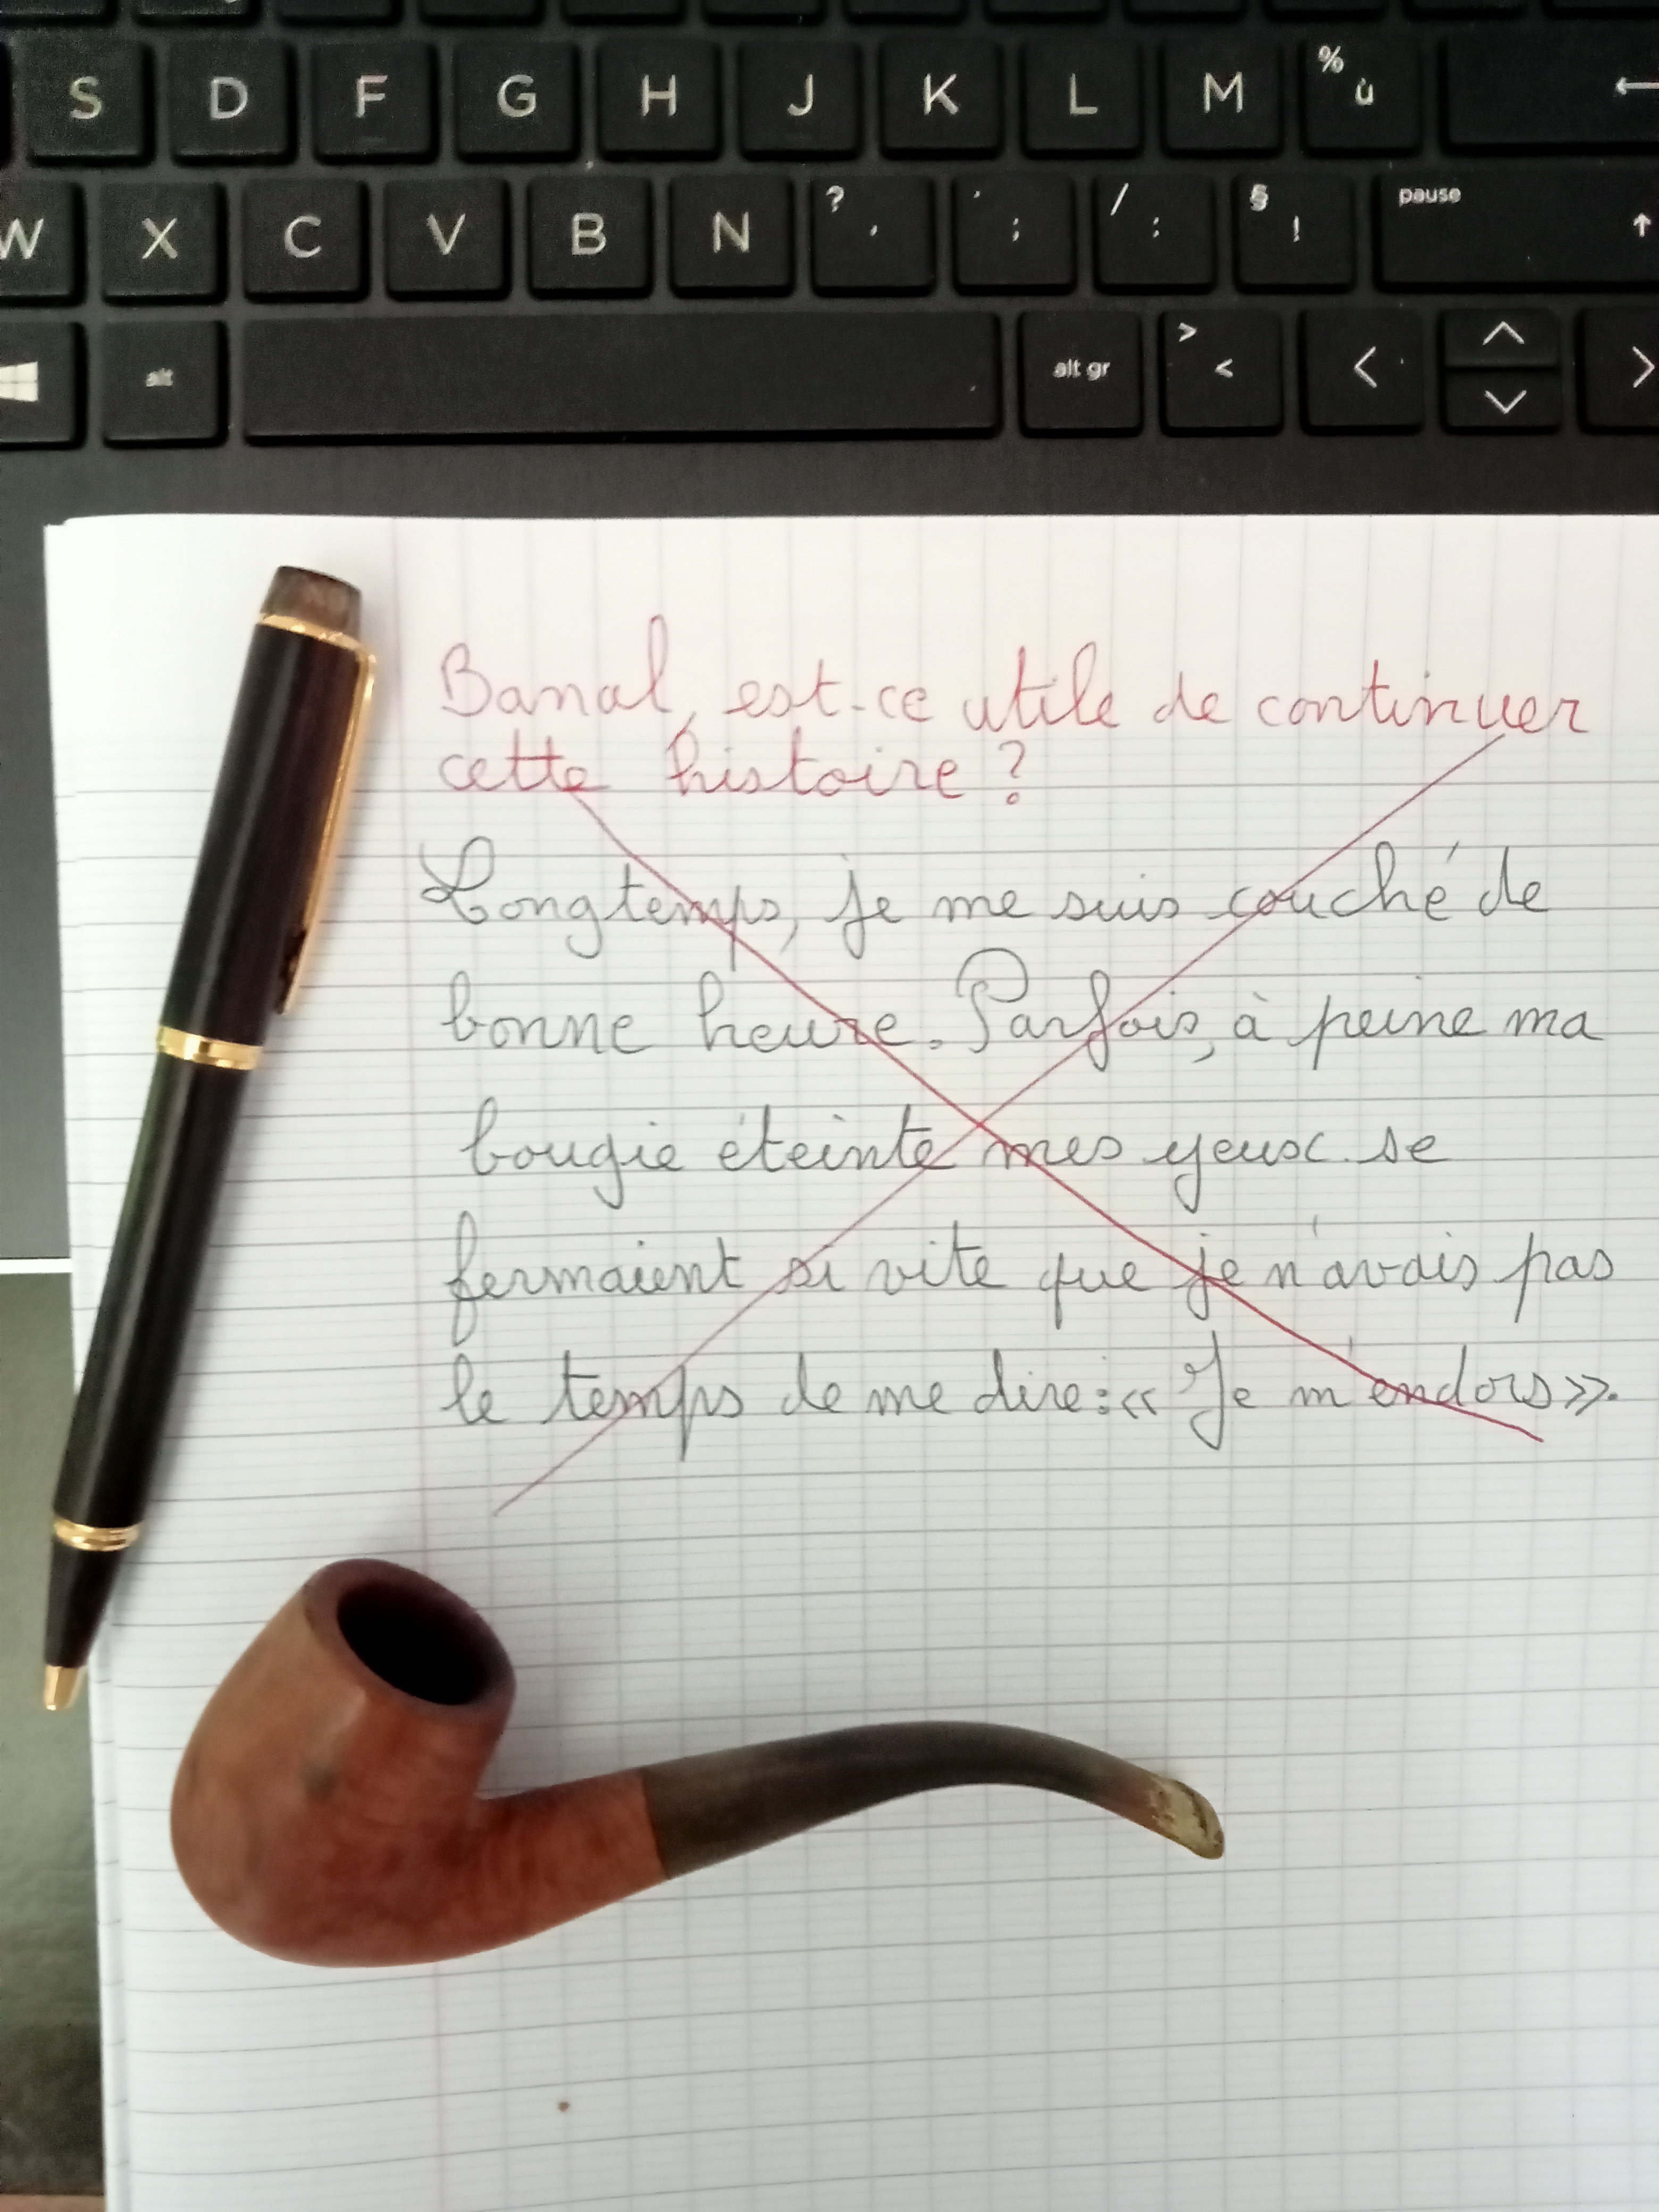 S D F G H J K L M % ù ←
W X C V B N ? , . ; / : § ! pause ↑
alt alt gr > < < ^ v >
Banal, est-ce utile de continuer
cette histoire ?
Longtemps, je me suis couché de
bonne heure. Parfois, à peine ma
bougie éteinte mes yeux se
fermaient si vite que je n'avais pas
le temps de me dire : « Je m'endors ».